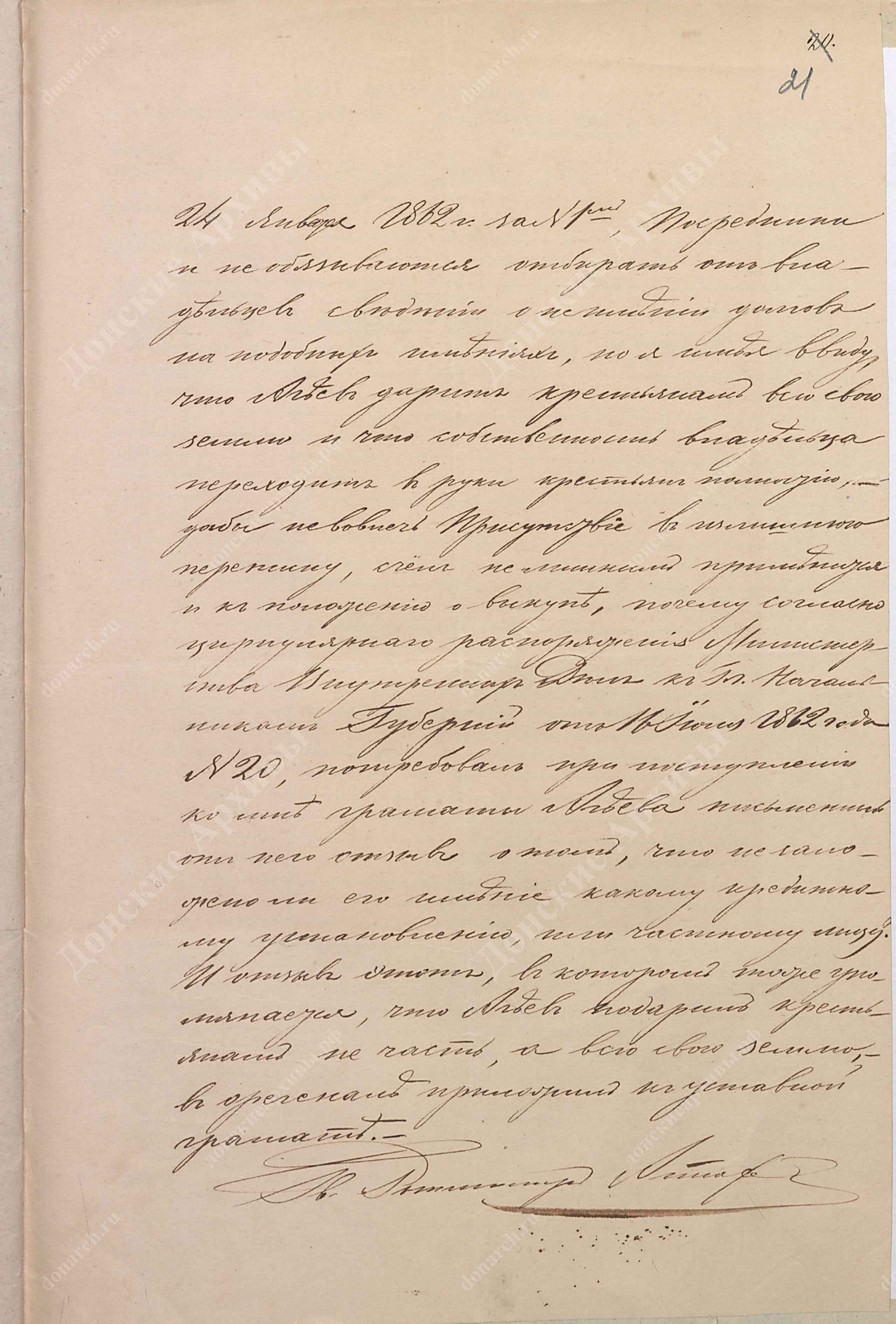 20.
21
24 Января 1862 г. за № 1мъ, Посредники
и не обязываются отбирать отъ вла-
дѣльцевъ свѣдѣнiй о неимѣнiи долговъ
на подобныхъ имѣнiяхъ, но я имѣя ввиду,
что Агѣевъ даритъ крестьянамъ всю свою
землю и что собственность владѣльца
переходитъ въ руки крестьянъ полною, —
дабы не вовлечь Присутствiе въ излишнюю
переписку, счелъ не лишнимъ примѣниться
и къ положенiю о выкупѣ, почему согласно
циркулярнаго распоряженiя Министер-
ства Внутреннихъ Дѣлъ къ Гг. Началь-
никамъ Губернiй отъ 16 Iюня 1862 года
№ 20, потребовалъ при поступленiи
ко мнѣ грамоты Агѣева письменный
отъ него отзывъ о томъ, что не зало-
жено ли его имѣнiе какому кредитно-
му установленiю, или частному лицу.
И отзывъ этотъ, въ которомъ тоже упо-
минается, что Агѣевъ подарилъ кресть-
янамъ не часть, а всю свою землю, —
въ
приложилъ къ уставной
грамотѣ. —
Ротмистръ